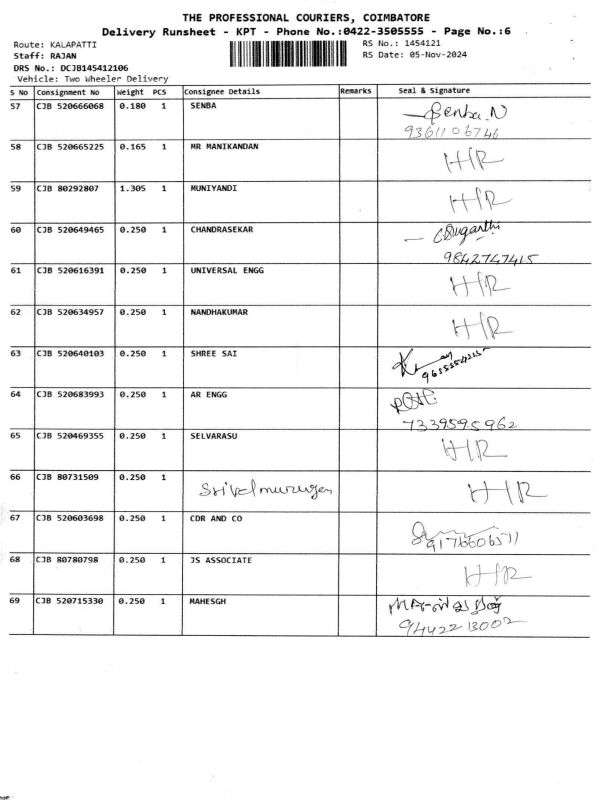 THE PROFESSIONAL COURIERS, COIMBATORE
Delivery Runsheet - KPT - Phone No.:0422-3505555 - Page No.:6
Route: KALAPATTI RS No.: 1454121
Staff: RAJAN RS Date: 05-Nov-2024
DRS No.: DCJB145412106
Vehicle: Two Wheeler Delivery
S No Consignment No Weight PCS Consignee Details Remarks Seal & Signature
57 CJB 520666068 0.180 1 SENBA Senba.N
9361106746
58 CJB 520665225 0.165 1 MR MANIKANDAN H/R
59 CJB 80292807 1.305 1 MUNIYANDI H/R
60 CJB 520649465 0.250 1 CHANDRASEKAR CSugarthi
9842747415
61 CJB 520616391 0.250 1 UNIVERSAL ENGG H/R
62 CJB 520634957 0.250 1 NANDHAKUMAR H/R
63 CJB 520640103 0.250 1 SHREE SAI
64 CJB 520683993 0.250 1 AR ENGG
7339595962
65 CJB 520469355 0.250 1 SELVARASU H/R
66 CJB 80731509 0.250 1 Srivelmurugan H/R
67 CJB 520603698 0.250 1 CDR AND CO
68 CJB 80780798 0.250 1 JS ASSOCIATE H/R
69 CJB 520715330 0.250 1 MAHESGH
9442213002